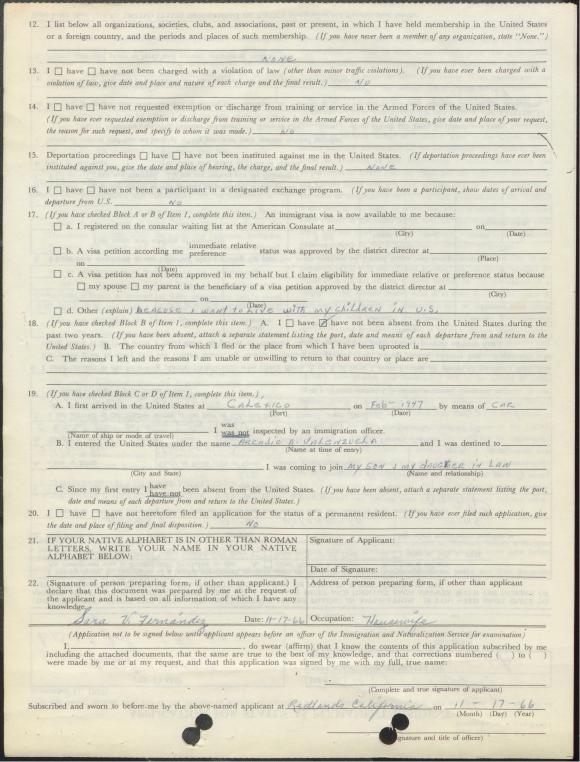 12. I list below all organizations, societies, clubs, and associations, past or present, in which I have held membership in the United States
or a foreign country, and the periods and places of such membership. (If you have never been a member of any organization, state "None.")
NONE
13. I ☐ have ☐ have not been charged with a violation of law (other than minor traffic violations). (If you have ever been charged with a
violation of law, give date and place and nature of each charge and the final result.) NO
14. I ☐ have ☐ have not requested exemption or discharge from training or service in the Armed Forces of the United States.
(If you have ever requested exemption or discharge from training or service in the Armed Forces of the United States, give date and place of your request,
the reason for such request, and specify to whom it was made.) NO
15. Deportation proceedings ☐ have ☐ have not been instituted against me in the United States. (If deportation proceedings have ever been
instituted against you, give the date and place of hearing, the charge, and the final result.) NONE
16. I ☐ have ☐ have not been a participant in a designated exchange program. (If you have been a participant, show dates of arrival and
departure from U.S. NO
17. (If you have checked Block A or B of Item 1, complete this item.) An immigrant visa is now available to me because:
☐ a. I registered on the consular waiting list at the American Consulate at on
(City) (Date)
☐ b. A visa petition according me immediate relative preference status was approved by the district director at
(Place)
on
(Date)
☐ c. A visa petition has not been approved in my behalf but I claim eligibility for immediate relative or preference status because
☐ my spouse ☐ my parent is the beneficiary of a visa petition approved by the district director at
(City)
on
(Date)
☐ d. Other (explain) because I want to live with my children in U.S.
18. (If you have checked Block B of Item 1, complete this item.) A. I ☐ have ☑ have not been absent from the United States during the
past two years. (If you have been absent, attach a separate statement listing the port, date and means of each departure from and return to the
United States.) B. The country from which I fled or the place from which I have been uprooted is
C. The reasons I left and the reasons I am unable or unwilling to return to that country or place are
19. (If you have checked Block C or D of Item 1, complete this item.)
A. I first arrived in the United States at CALEXICO on Feb- 1947 by means of CAR
(Port) (Date)
I was
was not inspected by an immigration officer.
(Name of ship or mode of travel)
B. I entered the United States under the name Arcadio A. Valenzuela and I was destined to
(Name at time of entry)
I was coming to join my son & my daughter in law
(City and State) (Name and relationship)
C. Since my first entry I have
have not been absent from the United States. (If you have been absent, attach a separate statement listing the port,
date and means of each departure from and return to the United States.)
20. I ☐ have ☐ have not heretofore filed an application for the status of a permanent resident. (If you have ever filed such application, give
the date and place of filing and final disposition.) NO
21. IF YOUR NATIVE ALPHABET IS IN OTHER THAN ROMAN
LETTERS, WRITE YOUR NAME IN YOUR NATIVE
ALPHABET BELOW:
Signature of Applicant:
Date of Signature:
22. (Signature of person preparing form, if other than applicant.) I
declare that this document was prepared by me at the request of
the applicant and is based on all information of which I have any
knowledge.
Address of person preparing form, if other than applicant
Sara V. Fernandez Date: 11-17-66 Occupation: Housewife
(Application not to be signed below until applicant appears before an officer of the Immigration and Naturalization Service for examination)
I, , do swear (affirm) that I know the contents of this application subscribed by me
including the attached documents, that the same are true to the best of my knowledge, and that corrections numbered ( ) to ( )
were made by me or at my request, and that this application was signed by me with my full, true name:
(Complete and true signature of applicant)
Subscribed and sworn to before me by the above-named applicant at Redlands California on 11 - 17 - 66
(Month) (Day) (Year)
(Signature and title of officer)